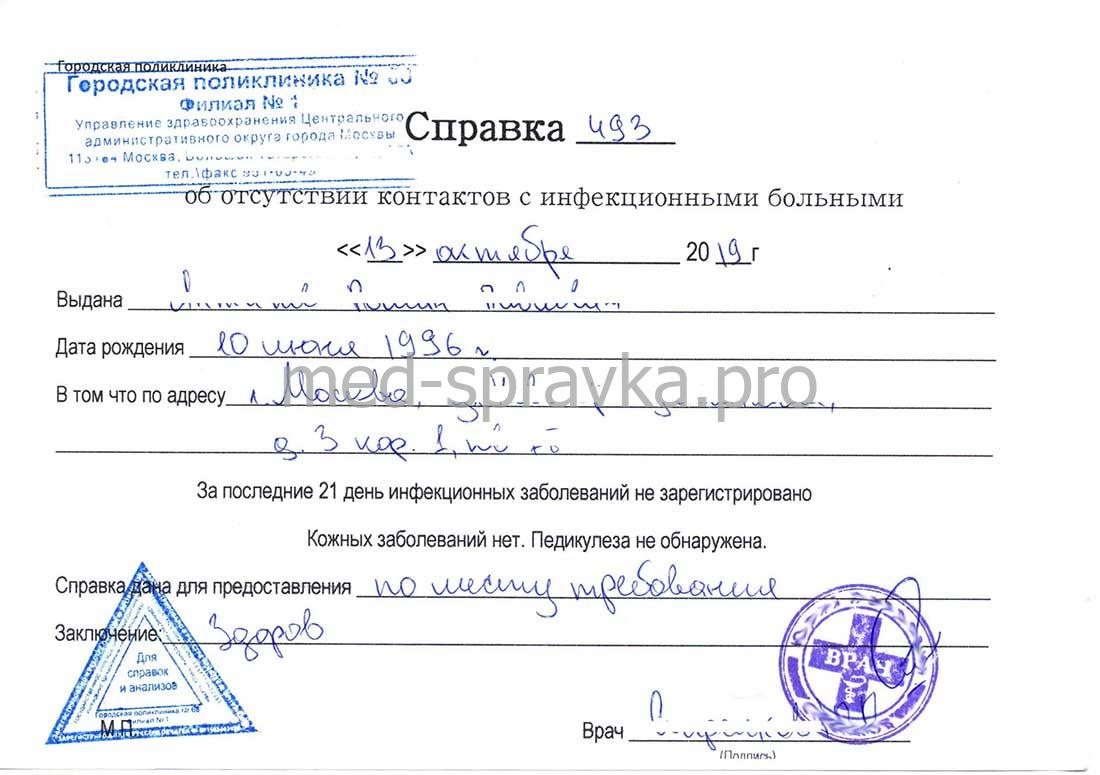 Городская поликлиника
Городская поликлиника №
Филиал № 1
Управление здравоохранения Центрального
административного округа города Москвы
Москва,
тел.\факс
Справка 493
об отсутствии контактов с инфекционными больными
<<13>> октября 2019 г
Выдана
Дата рождения 10 июня 1996 г.
В том что по адресу г. Москва,
med-spravka.pro
д. 3 кор. 1,
За последние 21 день инфекционных заболеваний не зарегистрировано
Кожных заболеваний нет. Педикулеза не обнаружена.
Справка дана для предоставления по месту требования
Заключение: Здоров
Для
справок
и анализов
Городская поликлиника № 68
Филиал № 1
М.П.
ВРАЧ
Врач
(Подпись)